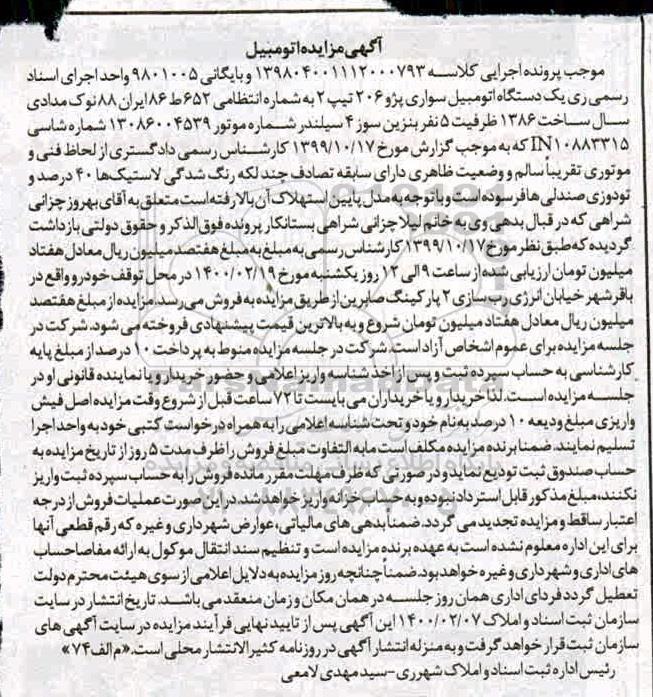 آگهی مزایده اتومبیل
موجب پرونده اجرایی کلاسه ۱۳۹۸۰۴۰۰۱۱۱۲۰۰۰۷۹۳ و بایگانی ۹۸۰۱۰۰۵ واحد اجرای اسناد
رسمی ری یک دستگاه اتومبیل سواری پژو ۲۰۶ تیپ ۲ به شماره انتظامی ۶۵۲ ط ۸۶ ایران ۸۸ نوک مدادی
سال ساخت ۱۳۸۶ ظرفیت ۵ نفر بنزین سوز ۴ سیلندر شماره موتور ۱۳۰۸۶۰۰۴۵۳۹ شماره شاسی
IN۱۰۸۸۳۳۱۵ که به موجب گزارش مورخ ۱۳۹۹/۱۰/۱۷ کارشناس رسمی دادگستری از لحاظ فنی و
موتوری تقریباً سالم و وضعیت ظاهری دارای سابقه تصادف چند لکه رنگ شدگی لاستیک‌ها ۴۰ درصد و
تودوزی صندلی ها فرسوده است و با توجه به مدل پایین استهلاک آن بالا رفته است متعلق به آقای بهروز چزانی
شراهی که در قبال بدهی وی به خانم لیلا چزانی شراهی بستانکار پرونده فوق الذکر و حقوق دولتی بازداشت
گردیده که طبق نظر مورخ ۱۳۹۹/۱۰/۱۷ کارشناس رسمی به مبلغ به مبلغ هفتصد میلیون ریال معادل هفتاد
میلیون تومان ارزیابی شده از ساعت ۹ الی ۱۲ روز یکشنبه مورخ ۱۴۰۰/۰۲/۱۹ در محل توقف خودرو واقع در
باقرشهر خیابان انرژی رب سازی ۲ پارکینگ صابرین از طریق مزایده به فروش می رسد. مزایده از مبلغ هفتصد
میلیون ریال معادل هفتاد میلیون تومان شروع و به بالاترین قیمت پیشنهادی فروخته می شود. شرکت در
جلسه مزایده برای عموم اشخاص آزاد است. شرکت در جلسه مزایده منوط به پرداخت ۱۰ درصد از مبلغ پایه
کارشناسی به حساب سپرده ثبت و پس از اخذ شناسه واریز اعلامی و حضور خریدار و یا نماینده قانونی او در
جلسه مزایده است. لذا خریدار و یا خریداران می بایست تا ۷۲ ساعت قبل از شروع وقت مزایده اصل فیش
واریزی مبلغ ودیعه ۱۰ درصد به نام خود و تحت شناسه اعلامی را به همراه درخواست کتبی خود به واحد اجرا
تسلیم نمایند. ضمنا برنده مزایده مکلف است مابه التفاوت مبلغ فروش را ظرف مدت ۵ روز از تاریخ مزایده به
حساب صندوق ثبت تودیع نماید و در صورتی که ظرف مهلت مقرر مانده فروش را به حساب سپرده ثبت واریز
نکنند، مبلغ مذکور قابل استرداد نبوده و به حساب خزانه واریز خواهد شد. در این صورت عملیات فروش از درجه
اعتبار ساقط و مزایده تجدید می گردد. ضمنا بدهی های مالیاتی، عوارض شهرداری و غیره که رقم قطعی آنها
برای این اداره معلوم نشده است به عهده برنده مزایده است و تنظیم سند انتقال موکول به ارائه مفاصا حساب
های اداری و شهرداری و غیره خواهد بود. ضمناً چنانچه روز مزایده به دلایل اعلامی از سوی هیئت محترم دولت
تعطیل گردد فردای اداری همان روز جلسه در همان مکان و زمان منعقد می باشد. تاریخ انتشار در سایت
سازمان ثبت اسناد و املاک ۱۴۰۰/۰۲/۰۷ این آگهی پس از تایید نهایی فرآیند مزایده در سایت آگهی های
سازمان ثبت قرار خواهد گرفت و به منزله انتشار آگهی در روزنامه کثیرالانتشار محلی است. «م الف ۷۴»
رئیس اداره ثبت اسناد و املاک شهرری - سید مهدی لامعی